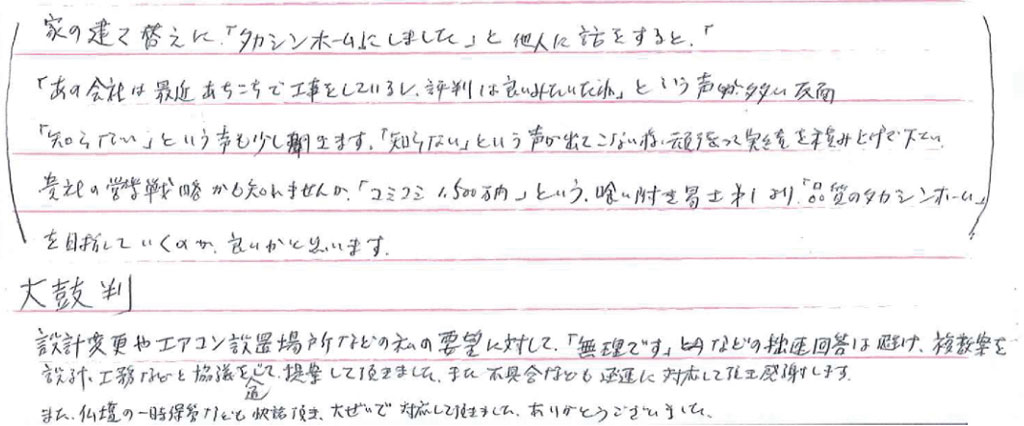 家の建て替えに、「タカシンホームにしました」と他人に話をすると、「
「あの会社は最近あちこちで工事をしているし、評判は良いみたいだね」という声が多い反面
「知らない」という声も少し聞きます。「知らない」という声が出てこない様、頑張って実績を積み上げて下さい。
貴社の営業戦略かも知れませんが、「コミコミ1,500万円」という、喰い付き易さ
より、「品質のタカシンホーム」
を目指していくのが、良いかと思います。
太鼓判
設計変更やエアコン設置場所などの私の要望に対して、「無理です」などの拙速回答は避け、複数案を
設計、工務などと協議を通じて、提案して頂きました、また不具合なども迅速に対応して頂き感謝します。
また、仏壇の一時保管なども快諾頂き、大ぜいで対応して頂きました、ありがとうございました。